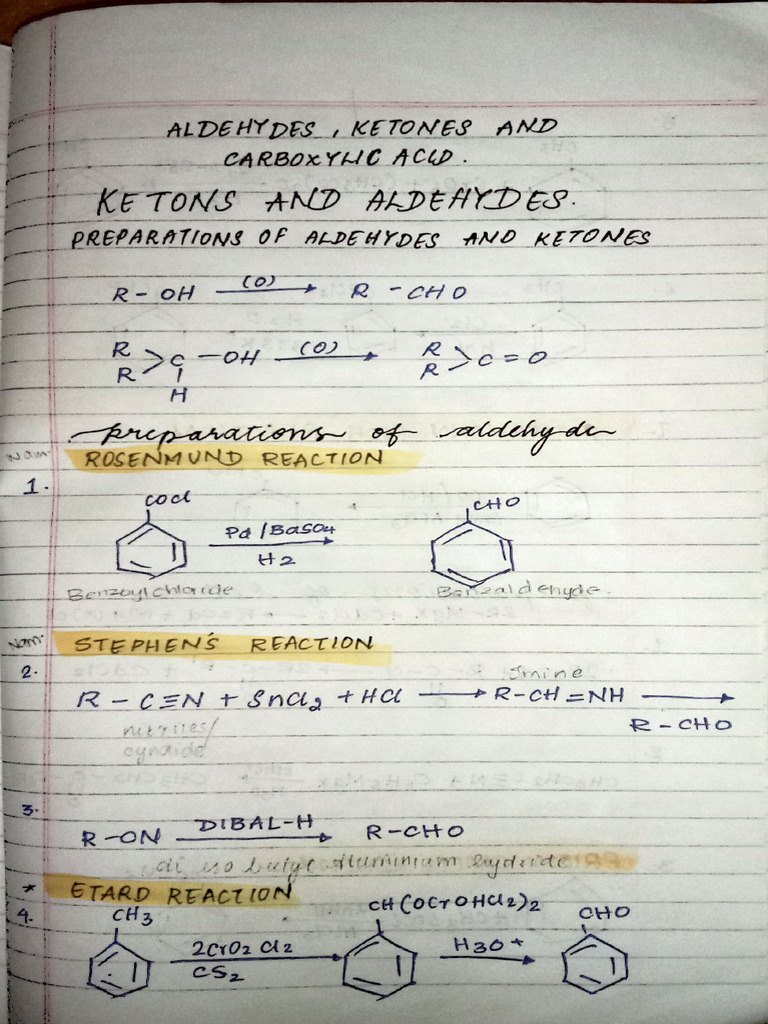 ALDEHYDES, KETONES AND
CARBOXYLIC ACID.
KETONS AND ALDEHYDES.
PREPARATIONS OF ALDEHYDES AND KETONES
R - OH (O) → R - CHO
R
R >C - OH (O) → R
R >C = O
H
preparations of aldehyde
Nam: ROSENMUND REACTION
1.
COCl CHO
Pd/BaSO4
H2
Benzoylchloride Benzaldehyde.
Nam: STEPHEN'S REACTION
2.
Imine
R - C≡N + SnCl2 + HCl → R-CH=NH →
R-CHO
nitriles/
cynaide
3.
R-CN DIBAL-H → R-CHO
di iso butyl Aluminium hydride
* ETARD REACTION
4. CH3 CH(OCrOHCl2)2 CHO
2CrO2Cl2 → H3O+ →
CS2